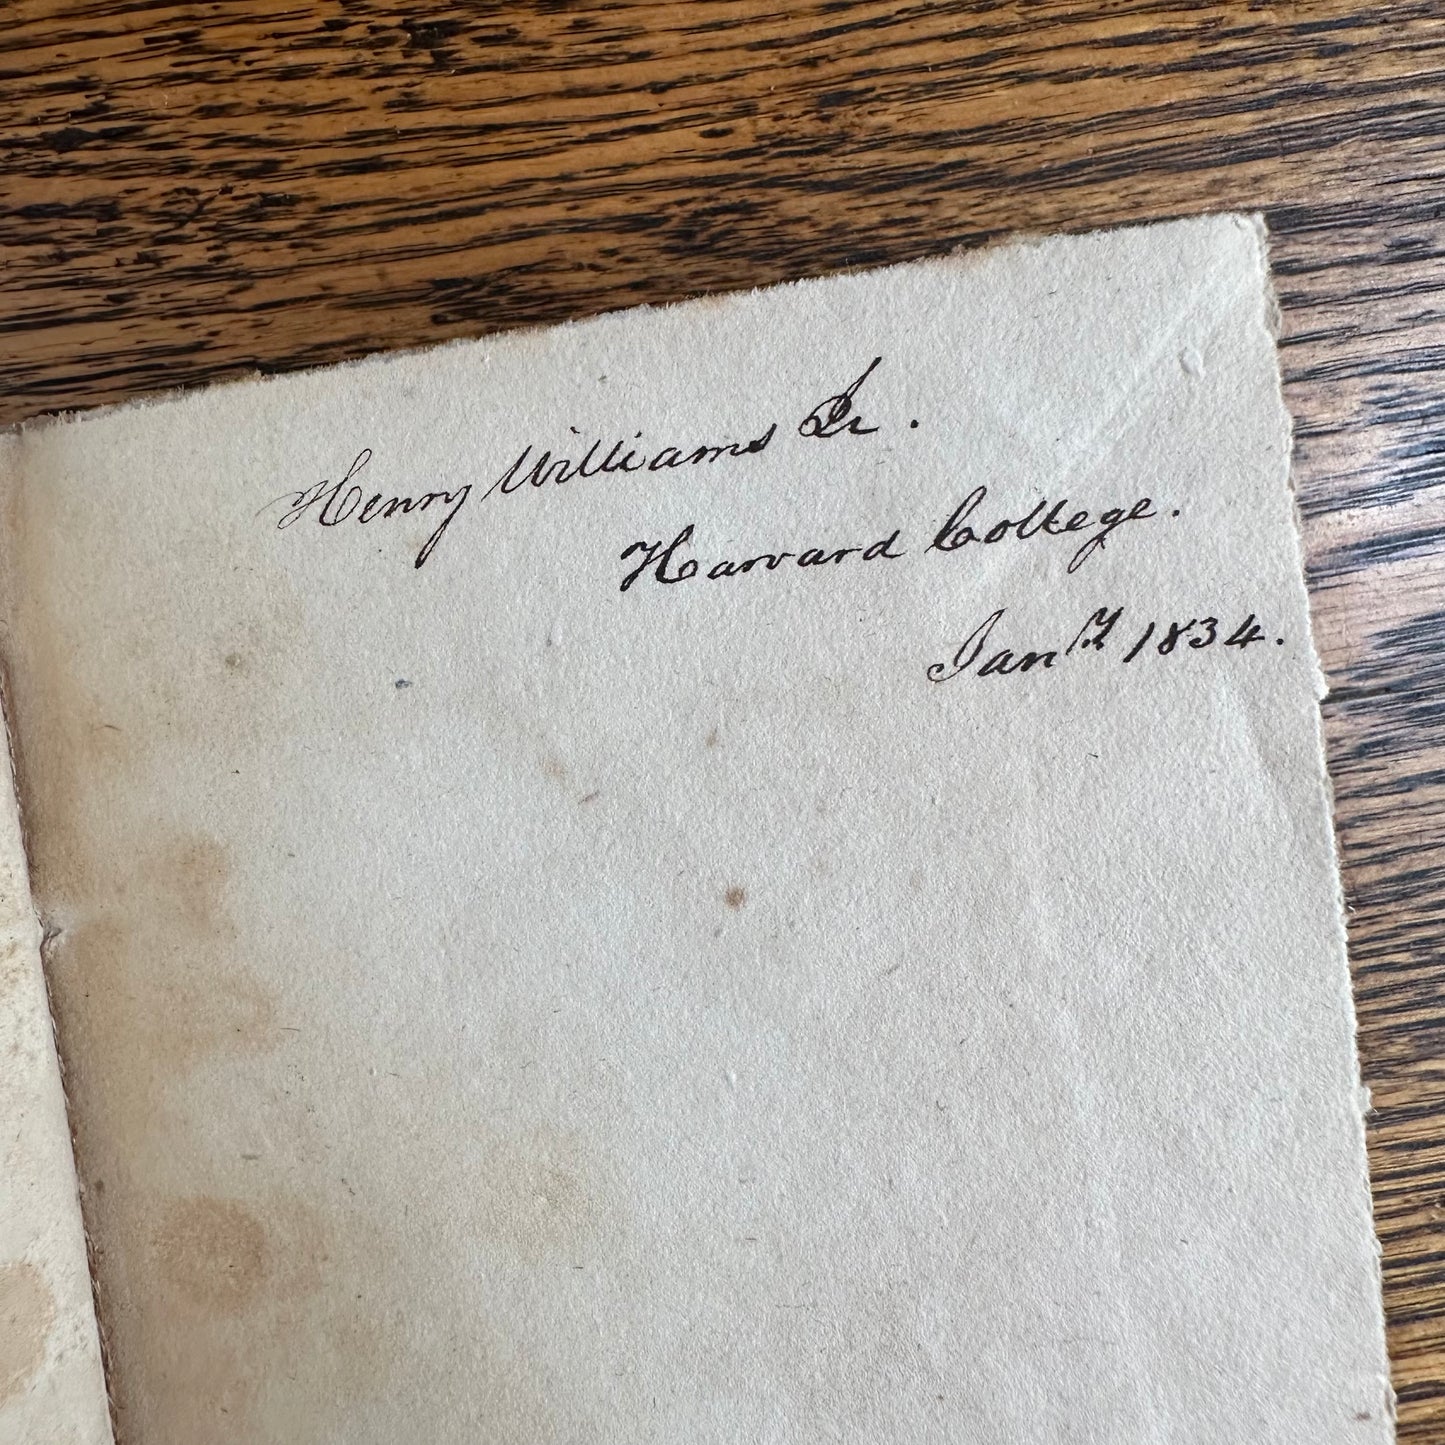 Henry Williams Jr.
Harvard College.
Jan^y 1834.